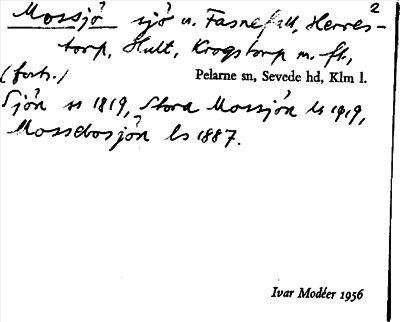 Mossjö sjö u. Fasnefall, Herres- 2
torp, Hult, Krogstorp m. fl.,
(forts.) Pelarne sn, Sevede hd, Klm l.
Sjön ss 1819, Stora Mossjön ls 1919,
Mossebosjön ls 1887.
Ivar Modéer 1956